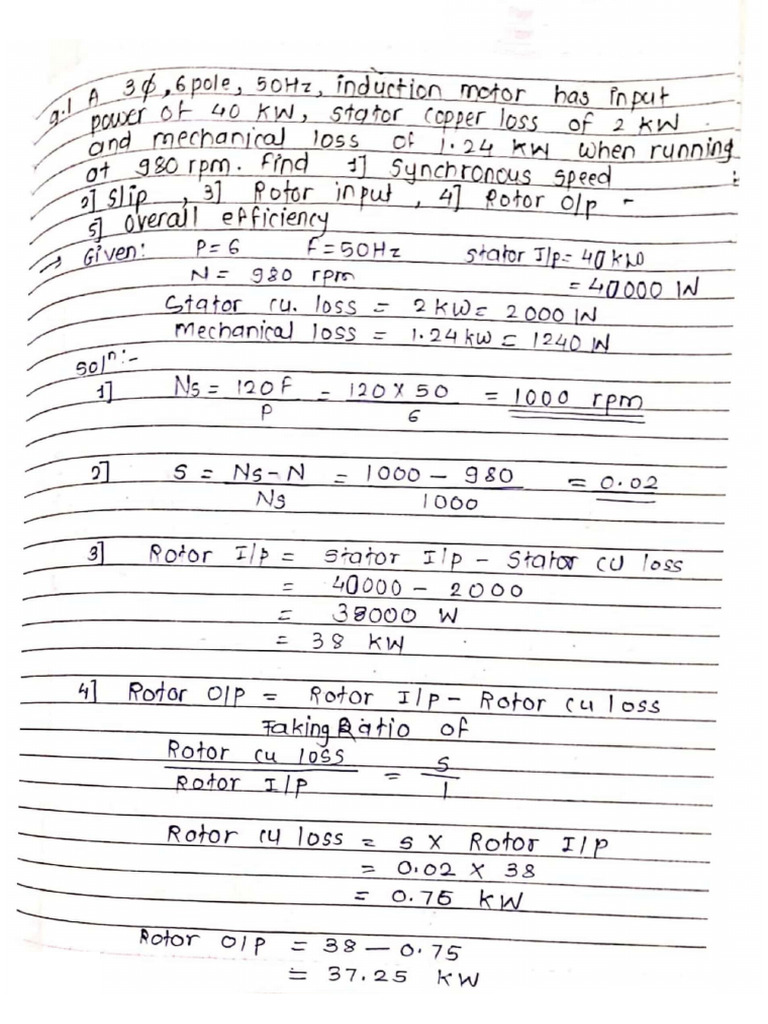 Q.1 A 3ϕ, 6 pole, 50Hz, induction motor has input
power of 40 KW, stator copper loss of 2 KW
and mechanical loss of 1.24 KW when running
at 980 rpm. Find 1] Synchronous speed
2] Slip, 3] Rotor input, 4] Rotor O/p -
5] Overall efficiency
→ Given: P=6 F=50Hz Stator I/p= 40 KW
N = 980 rpm = 40000 W
Stator cu. loss = 2 KW = 2000 W
Mechanical loss = 1.24 kw = 1240 W
Solⁿ:-
1] Ns = 120F = 120 X 50 = 1000 rpm
P 6
2] S = Ns-N = 1000 - 980 = 0.02
Ns 1000
3] Rotor I/p = Stator I/p - Stator cu loss
= 40000 - 2000
= 38000 W
= 38 KW
4] Rotor O/P = Rotor I/P - Rotor cu loss
Taking Ratio of
Rotor cu loss = S
Rotor I/P 1
Rotor cu loss = S X Rotor I/P
= 0.02 X 38
= 0.75 KW
Rotor O/P = 38 - 0.75
= 37.25 KW